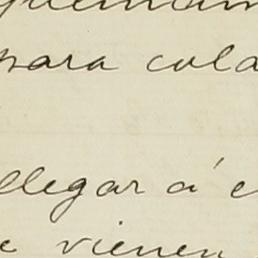 para cola
llegar á e
e vienen